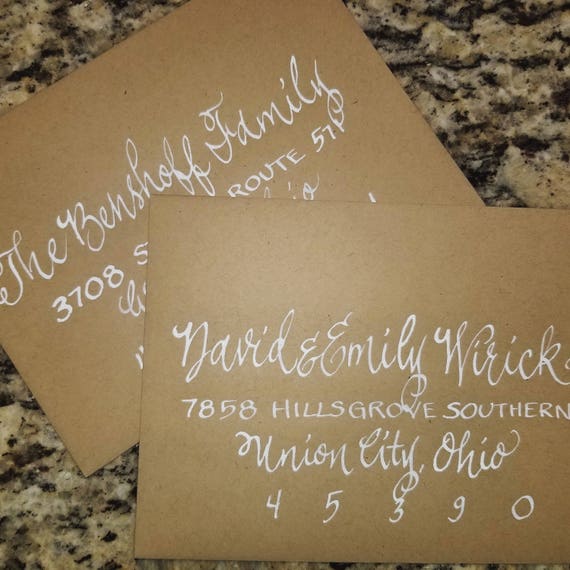 The Benshoff Family
3708 S ROUTE 571
David & Emily Wirick
7858 HILLSGROVE SOUTHERN
Union City, Ohio
4 5 3 9 0